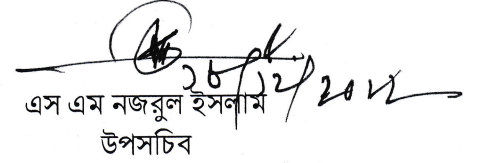 ১৮/১২/২০২২
এস এম নজরুল ইসলাম
উপসচিব